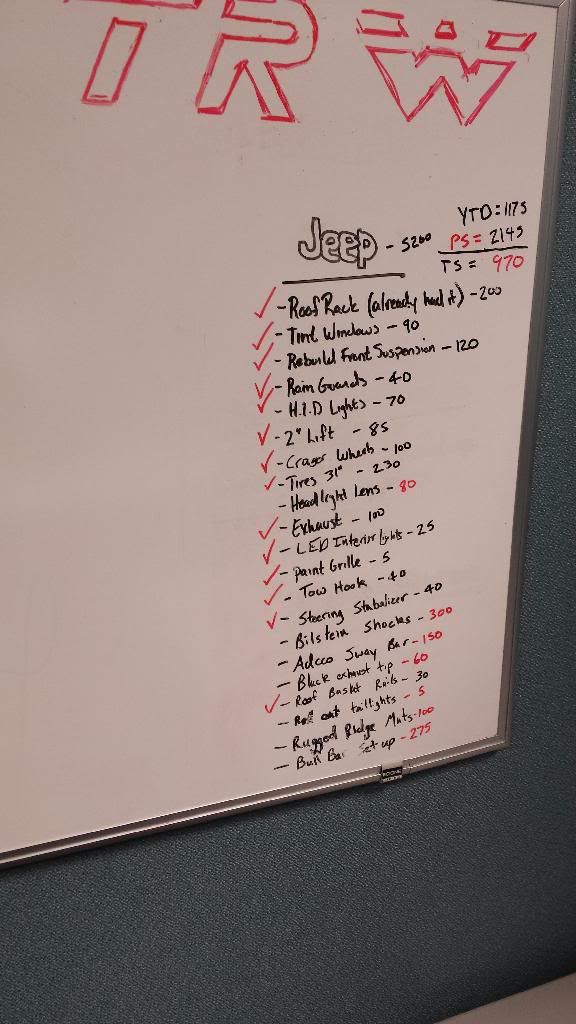 TRW
YTD = 1175
PS = 2145
TS = 970
Jeep - 5200
- Roof Rack (already had it) - 200
- Tint Windows - 90
- Rebuild Front Suspension - 120
- Rain Guards - 40
- H.I.D Lights - 70
- 2" Lift - 85
- Crager Wheels - 100
- Tires 31" - 230
- Headlight Lens - 80
- Exhaust - 100
- LED Interior lights - 25
- Paint Grille - 5
- Tow Hook - 40
- Steering Stabalizer - 40
- Bilstein Shocks - 300
- Adcco Sway Bar - 150
- Black exhaust tip - 60
- Roof Baskt Rails - 30
- out taillights - 5
- Rugged Ridge Mats - 100
- Bull Bar Set up - 275